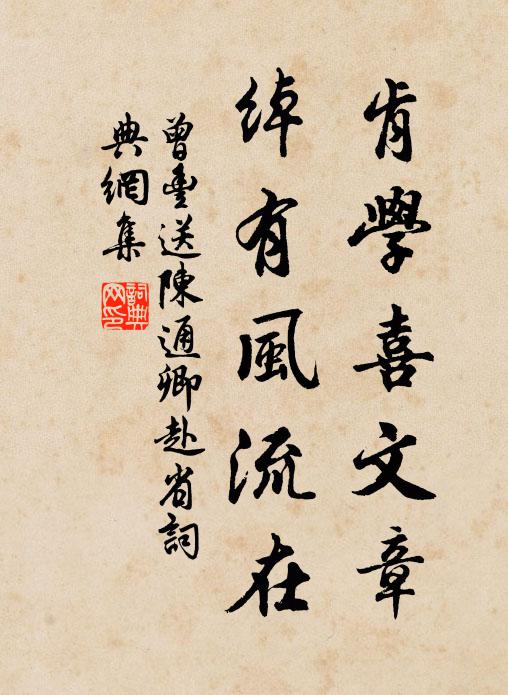 肯學喜文章
綽有風流在
曾豐送陳通卿赴省詞
典網集
詞典網印